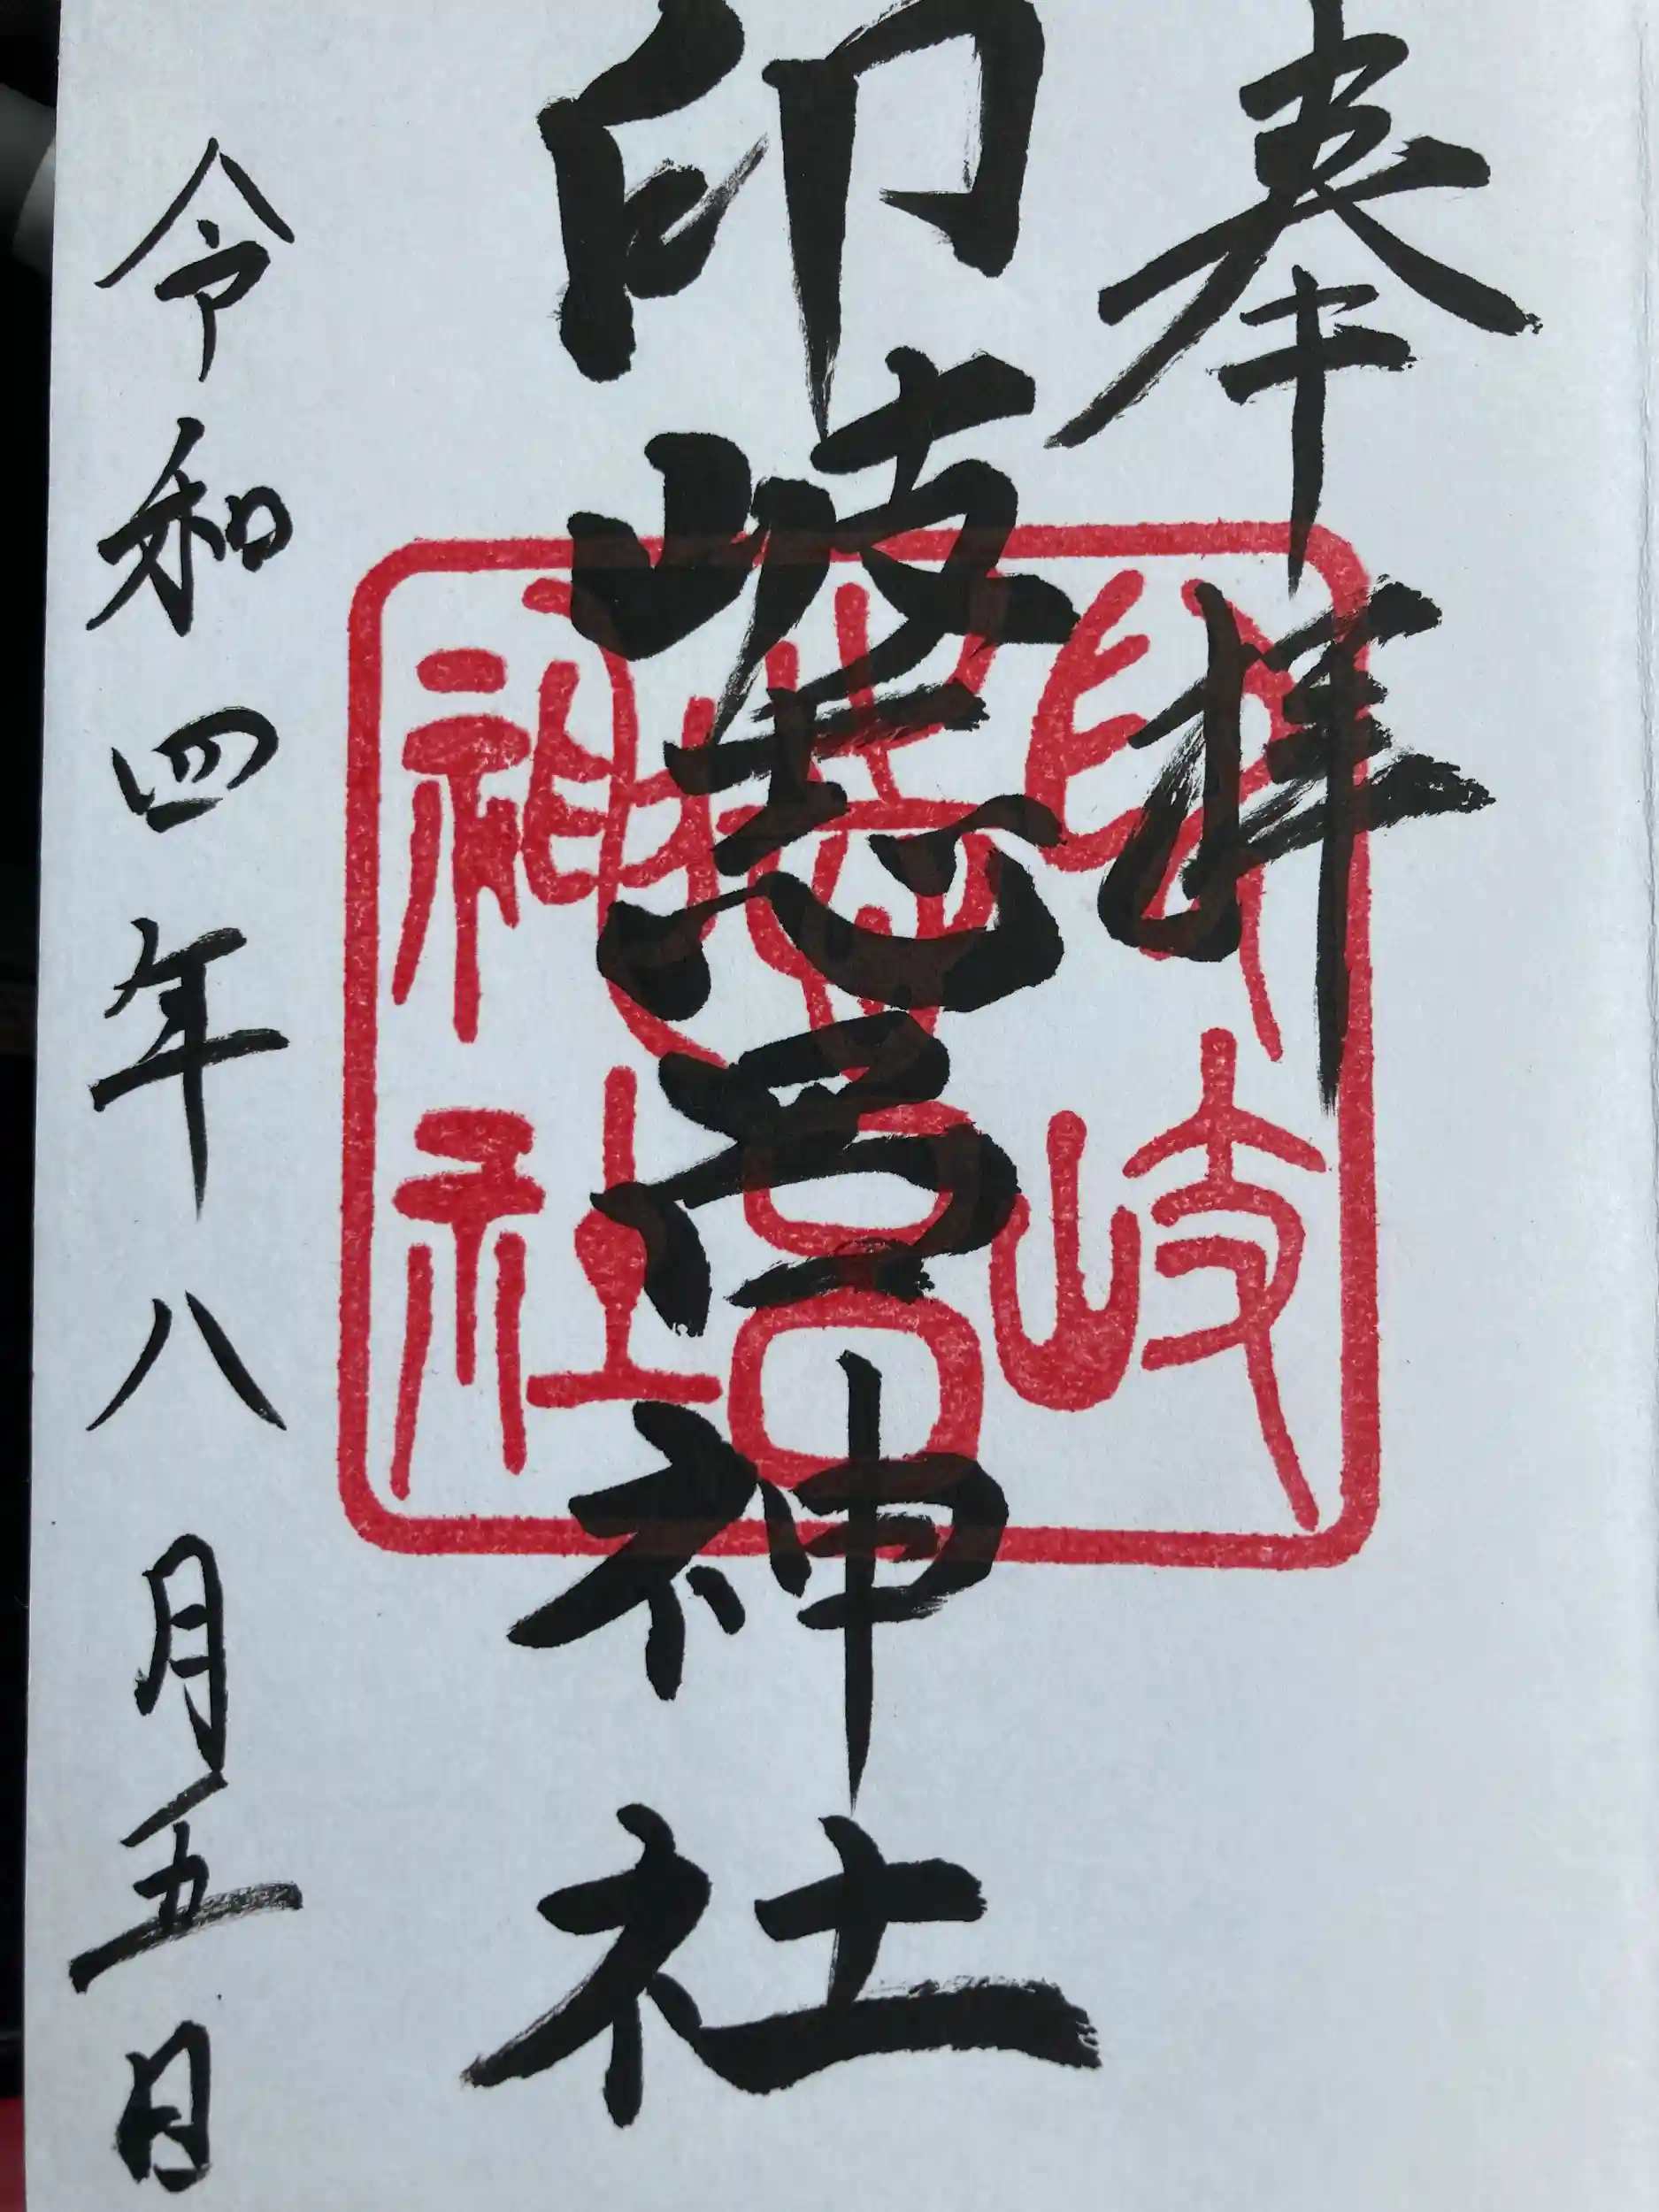 奉拝
印岐志呂神社
印岐
志呂
神社
令和四年八月五日